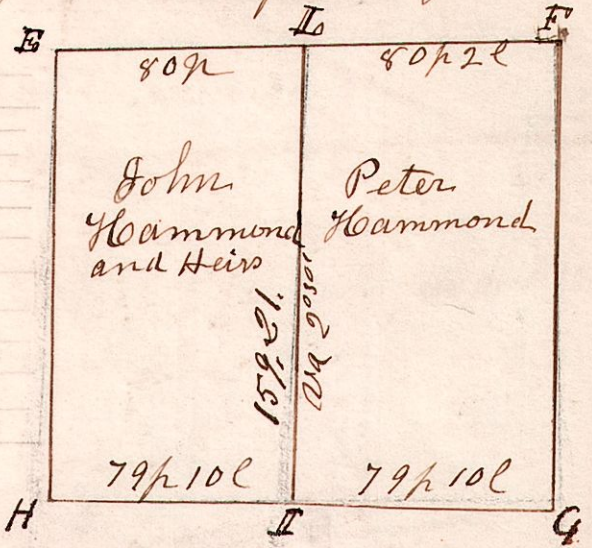 E L F
80p
80p2l
John
Hammond
and Heirs
Peter
Hammond
Va 2°50'
79p10l
79p10l
H I G